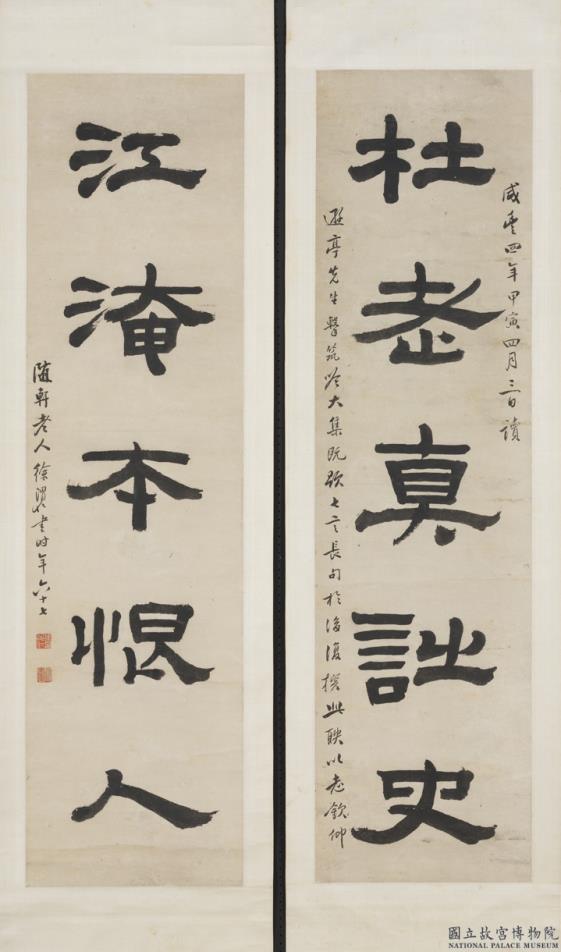 咸豐四年甲寅四月三日讀
杜老真詩史
亭先生擊筑吟大集既七言長句於後復撰此聯以志欽仰
江淹本恨人
隨軒老人徐渭仁書時年六十七
國立故宮博物院
NATIONAL PALACE MUSEUM